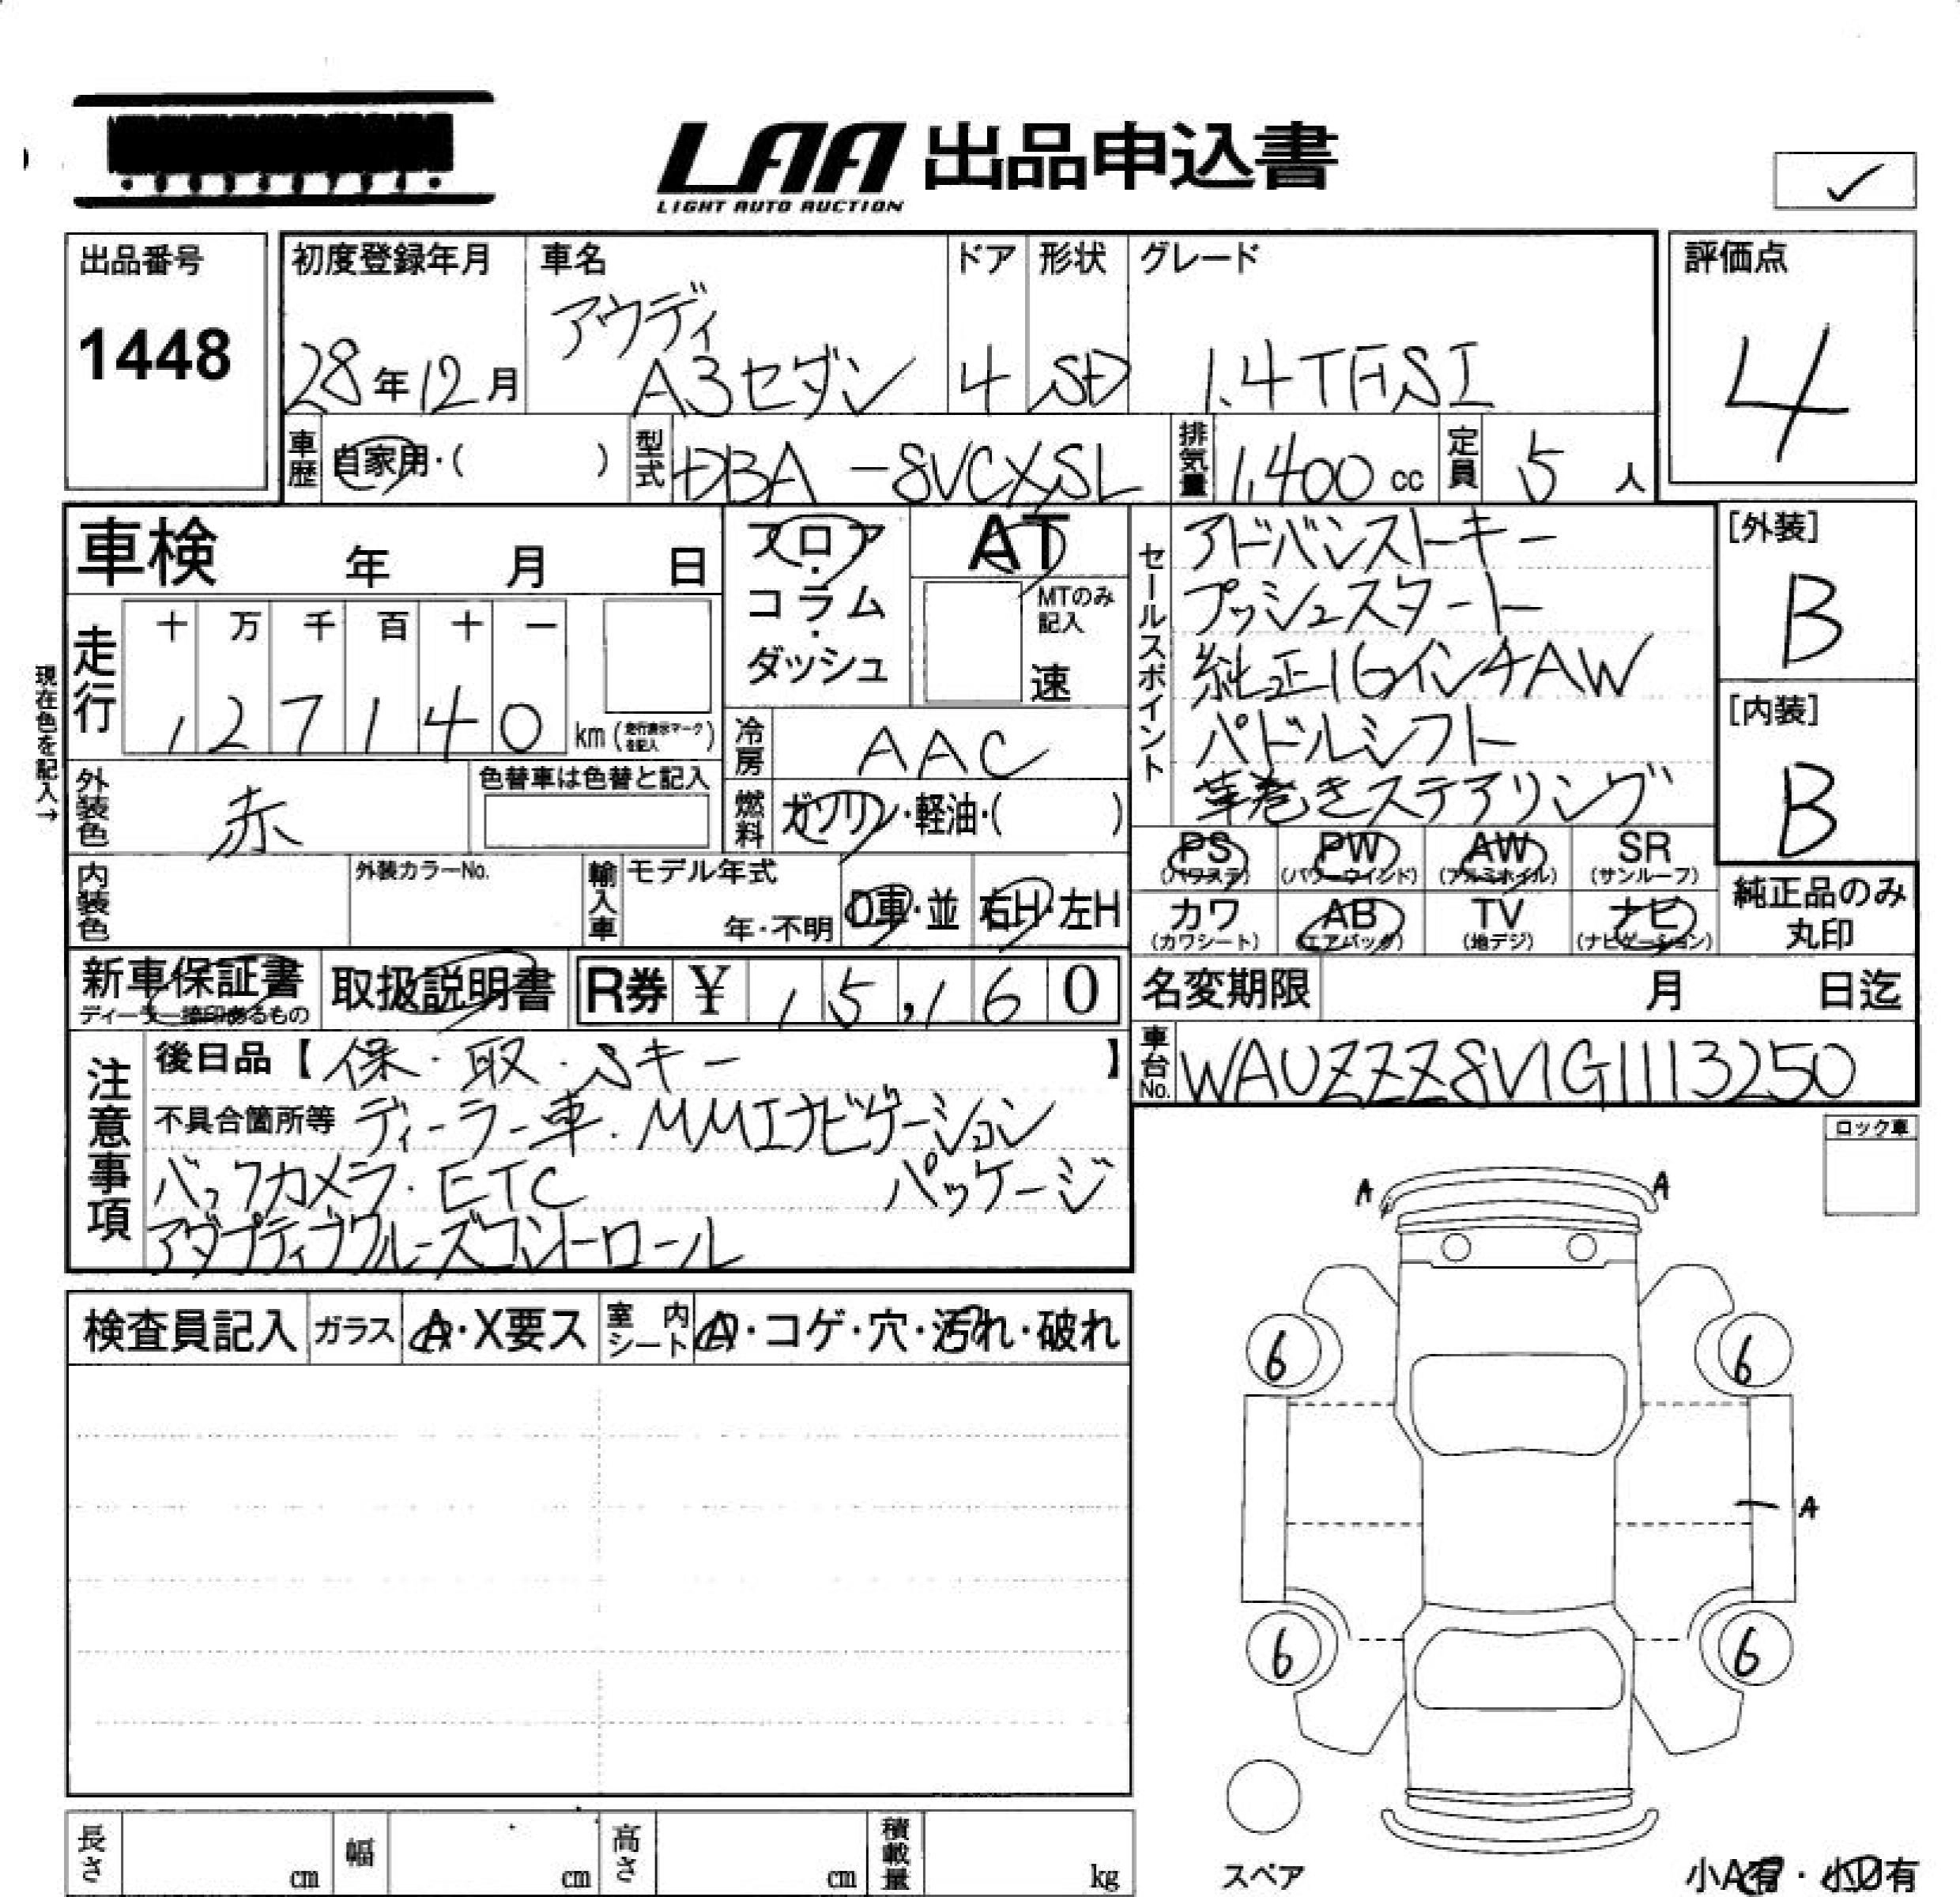 LAA 出品申込書
LIGHT AUTO AUCTION
✓
出品番号
1448
初度登録年月
28年12月
車名
アウディ
A3セダン
ドア
4
形状
SD
グレード
1.4TFSI
評価点
4
車歴 自家用・( )
型式 DBA-8VCXSL
排気量 1,400 cc
定員 5 人
車検 年 月 日
フロア・コラム・ダッシュ
AT
MTのみ記入
速
セールスポイント
アドバンストキー
プッシュスタート
純正16インチAW
パドルシフト
革巻きステアリング
[外装]
B
[内装]
B
現在色を記入→
走行
十 万 千 百 十 一
1 2 7 1 4 0 km (走行表示マークを記入)
冷房 AAC
外装色 赤
色替車は色替と記入
燃料 ガソリン・軽油・( )
内装色
外装カラーNo.
輸入車
モデル年式
年・不明
D車・並
右H・左H
PS (パワステ) PW (パワーウインド) AW (アルミホイル) SR (サンルーフ)
カワ (カワシート) AB (エアバック) TV (地デジ) ナビ (ナビゲーション)
純正品のみ丸印
新車保証書
ディーラー捺印あるもの
取扱説明書
R券 ¥ 15,160
名変期限 月 日迄
車台No. WAUZZZ8V1G1113250
注意事項
後日品【保・取・Sキー】
不具合箇所等 ディーラー車.MMIナビゲーション
バックカメラ.ETC パッケージ
アダプティブクルーズコントロール
ロック車
A A
検査員記入 ガラス A・X要ス 室内シート A・コゲ・穴・汚れ・破れ
6 6
A
6 6
スペア
小A有・小U有
長さ cm 幅 cm 高さ cm 積載量 kg